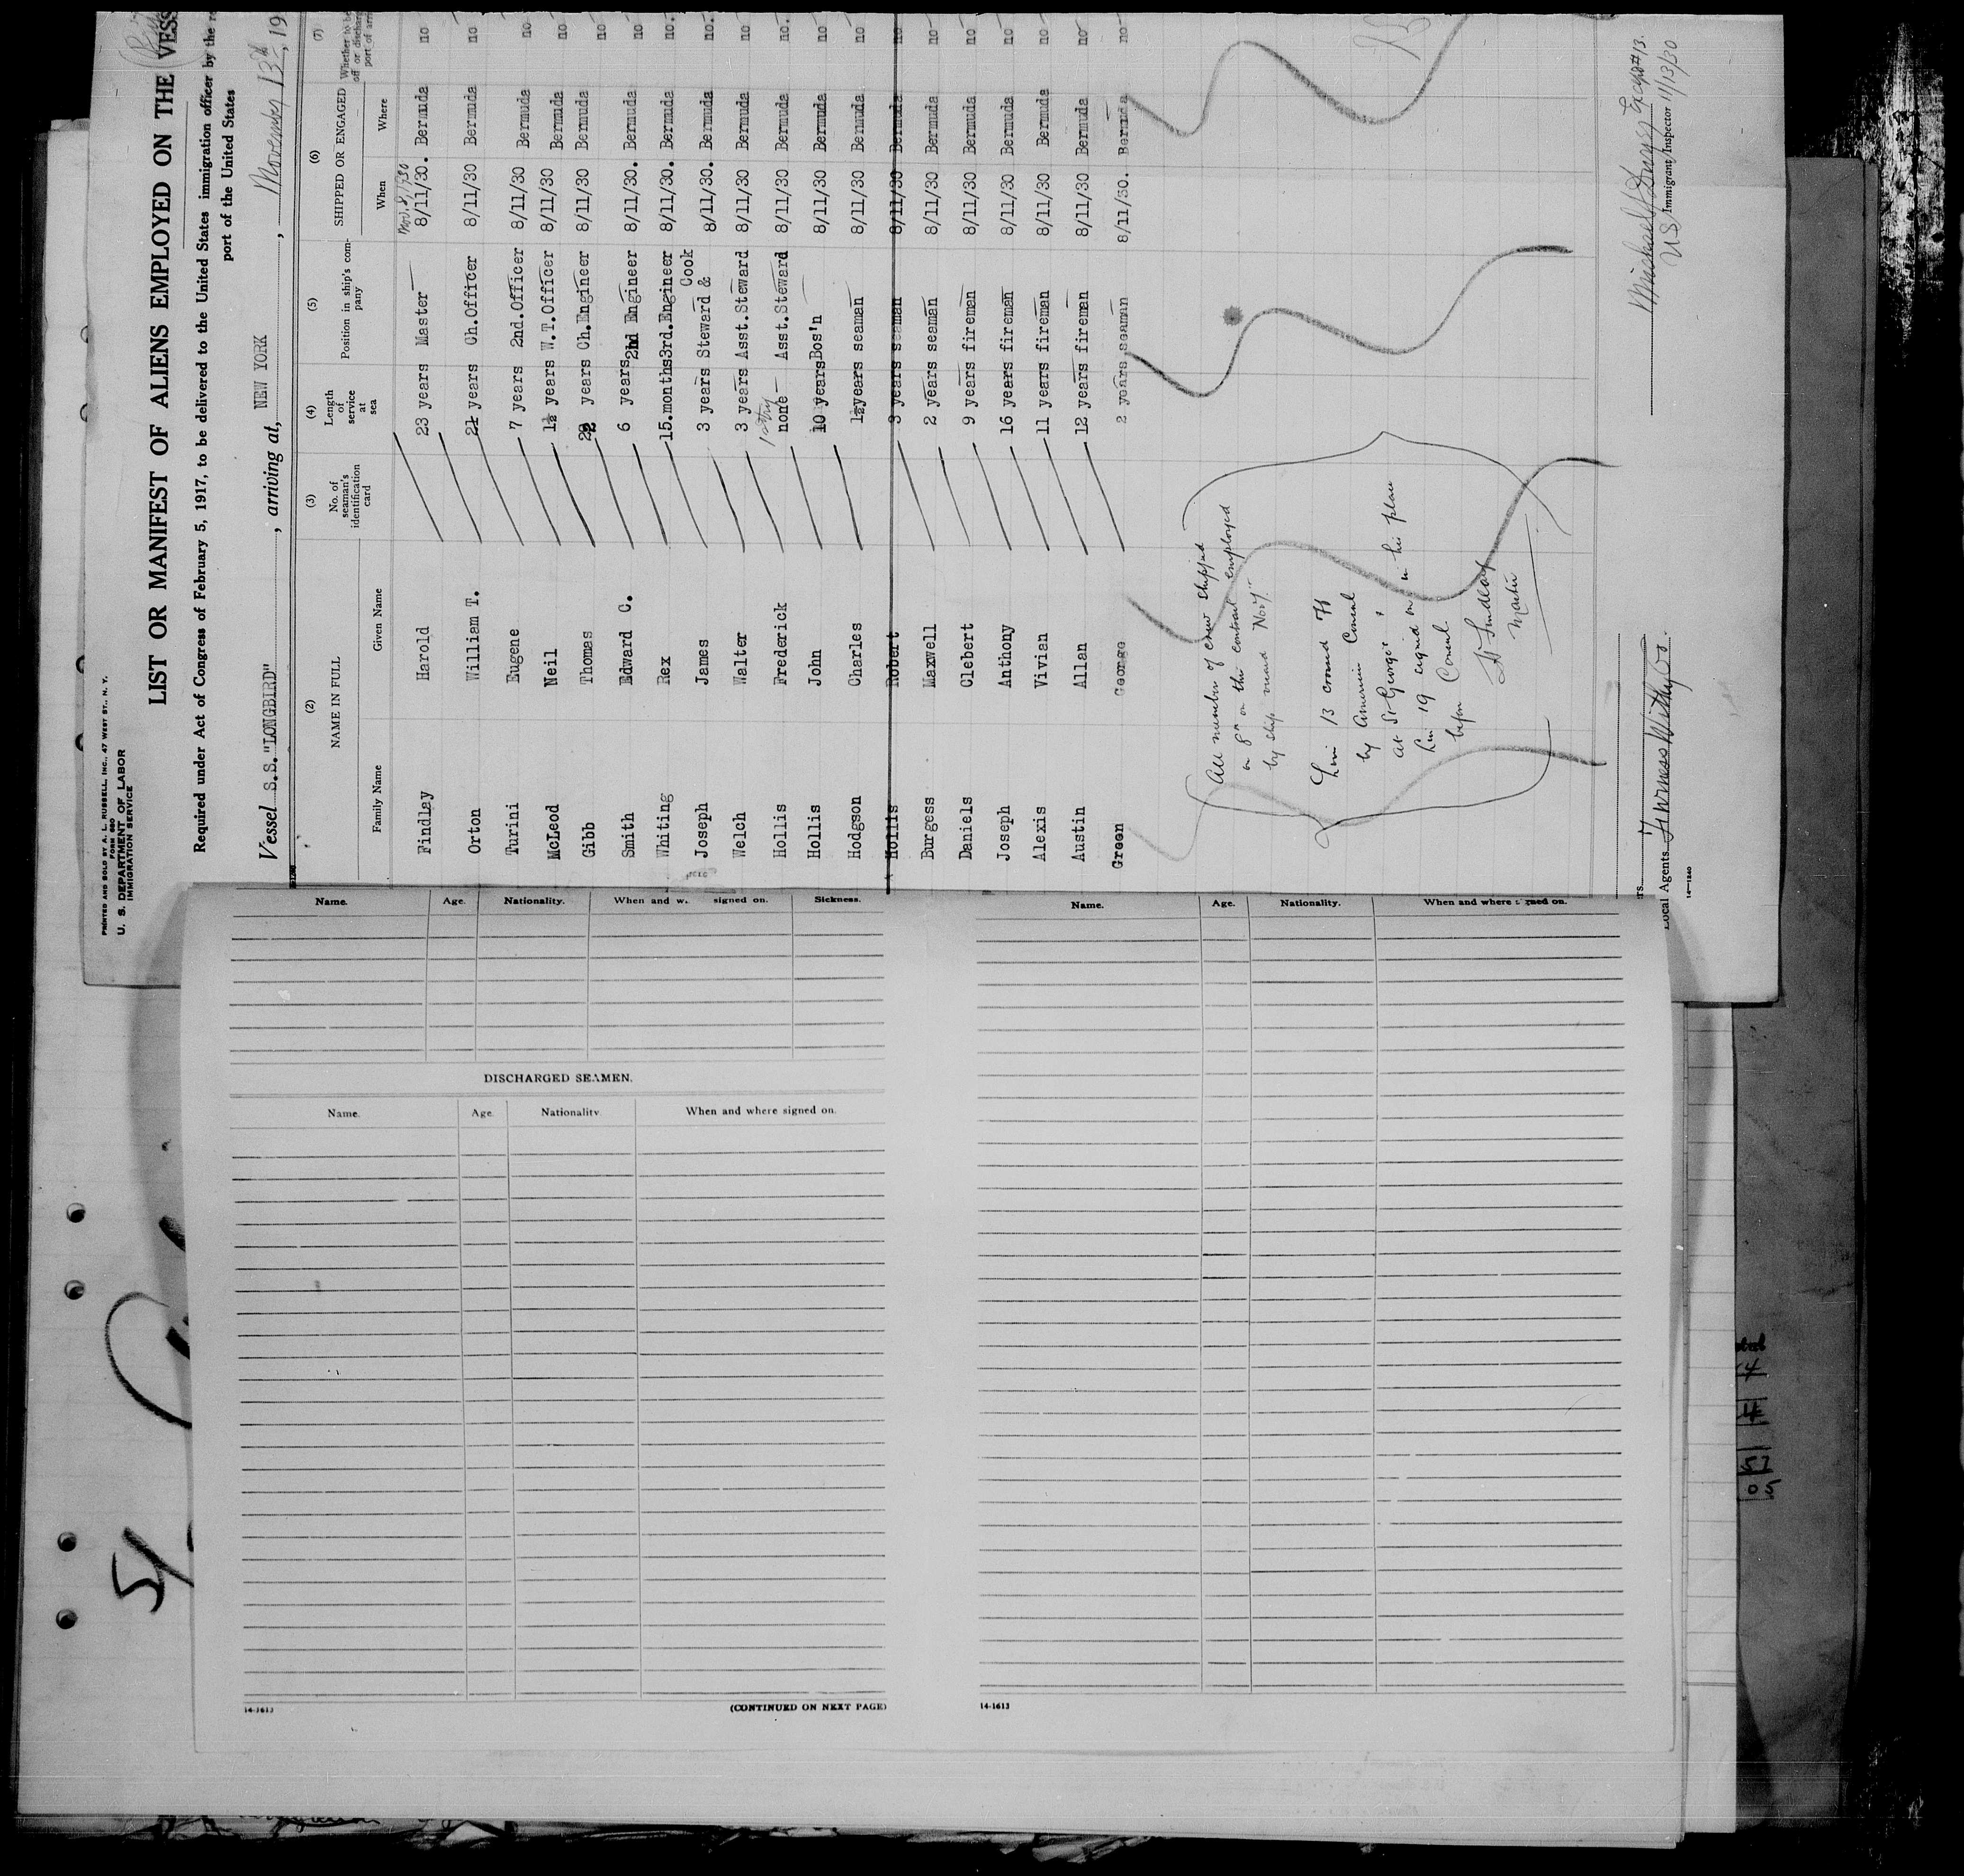 PRINTED AND SOLD BY A. L. RUSSELL, INC., 47 WEST ST., N. Y.
FORM 680
U. S. DEPARTMENT OF LABOR
IMMIGRATION SERVICE
LIST OR MANIFEST OF ALIENS EMPLOYED ON THE VESS
Required under Act of Congress of February 5, 1917, to be delivered to the United States immigration officer by the
port of the United States
Vessel S.S. "LONGBIRD", arriving at, NEW YORK, November 13th, 19
(2) (3) (4) (5) (6) (7)
NAME IN FULL No. of seaman's identification card Length of service at sea Position in ship's company SHIPPED OR ENGAGED Whether to be
Family Name Given Name When Where
Nov. 8, 1930
Findlay Harold 23 years Master 8/11/30. Bermuda no
Orton William T. 21 years Ch.Officer 8/11/30 Bermuda no
Turini Eugene 7 years 2nd.Officer 8/11/30 Bermuda no
McLeod Neil 1½ years W.T.Officer 8/11/30 Bermuda no
Gibb Thomas 22 years Ch.Engineer 8/11/30 Bermuda no
Smith Edward C. 6 years 2nd Engineer 8/11/30. Bermuda no
Whiting Rex 15.months 3rd.Engineer 8/11/30. Bermuda no.
Joseph James 3 years Steward & Cook 8/11/30. Bermuda no.
Welch Walter 3 years Asst.Steward 8/11/30 Bermuda no
Hollis Frederick none Asst.Steward 8/11/30 Bermuda no.
Hollis John 10 years Bos'n 8/11/30 Bermuda no
Hodgson Charles 1½years seaman 8/11/30 Bermuda no
Hollis Robert 3 years seaman 8/11/30 Bermuda no
Burgess Maxwell 2 years seaman 8/11/30 Bermuda no
Daniels Clebert 9 years fireman 8/11/30 Bermuda no
Joseph Anthony 16 years fireman 8/11/30 Bermuda no
Alexis Vivian 11 years fireman 8/11/30 Bermuda no
Austin Allan 12 years fireman 8/11/30 Bermuda no
Green George 2 years seaman 8/11/30. Bermuda no
All members of crew shipped
on 8th on the contract employed
by ship
Line 13 crossed off
by American Consul
at St George's,
line 19 signed on in his place
before Consul.
H Findlay
Master
U.S. Immigrant Inspector 11/13/30
Local Agents Furness Withy Co.
14—1240
Name. Age. Nationality. When and w. signed on. Sickness.
DISCHARGED SEAMEN.
Name. Age. Nationality. When and where signed on.
14-1613
(CONTINUED ON NEXT PAGE)
Name. Age. Nationality. When and where signed on.
14-1613